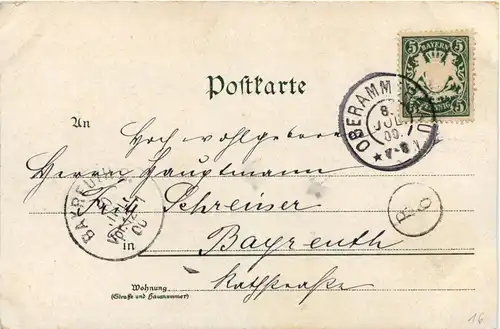 5 BAYERN 5
5 PFENNIG 5
OBERAMMERGAU
8.
JUL
00.
7-8
Postkarte
An
Hochwohlgeboren
Herrn Hauptmann
Fritz Schreiner
BAYREUTH
00
in Bayreuth
Rathstraße
Wohnung
(Straße und Hausnummer)
16